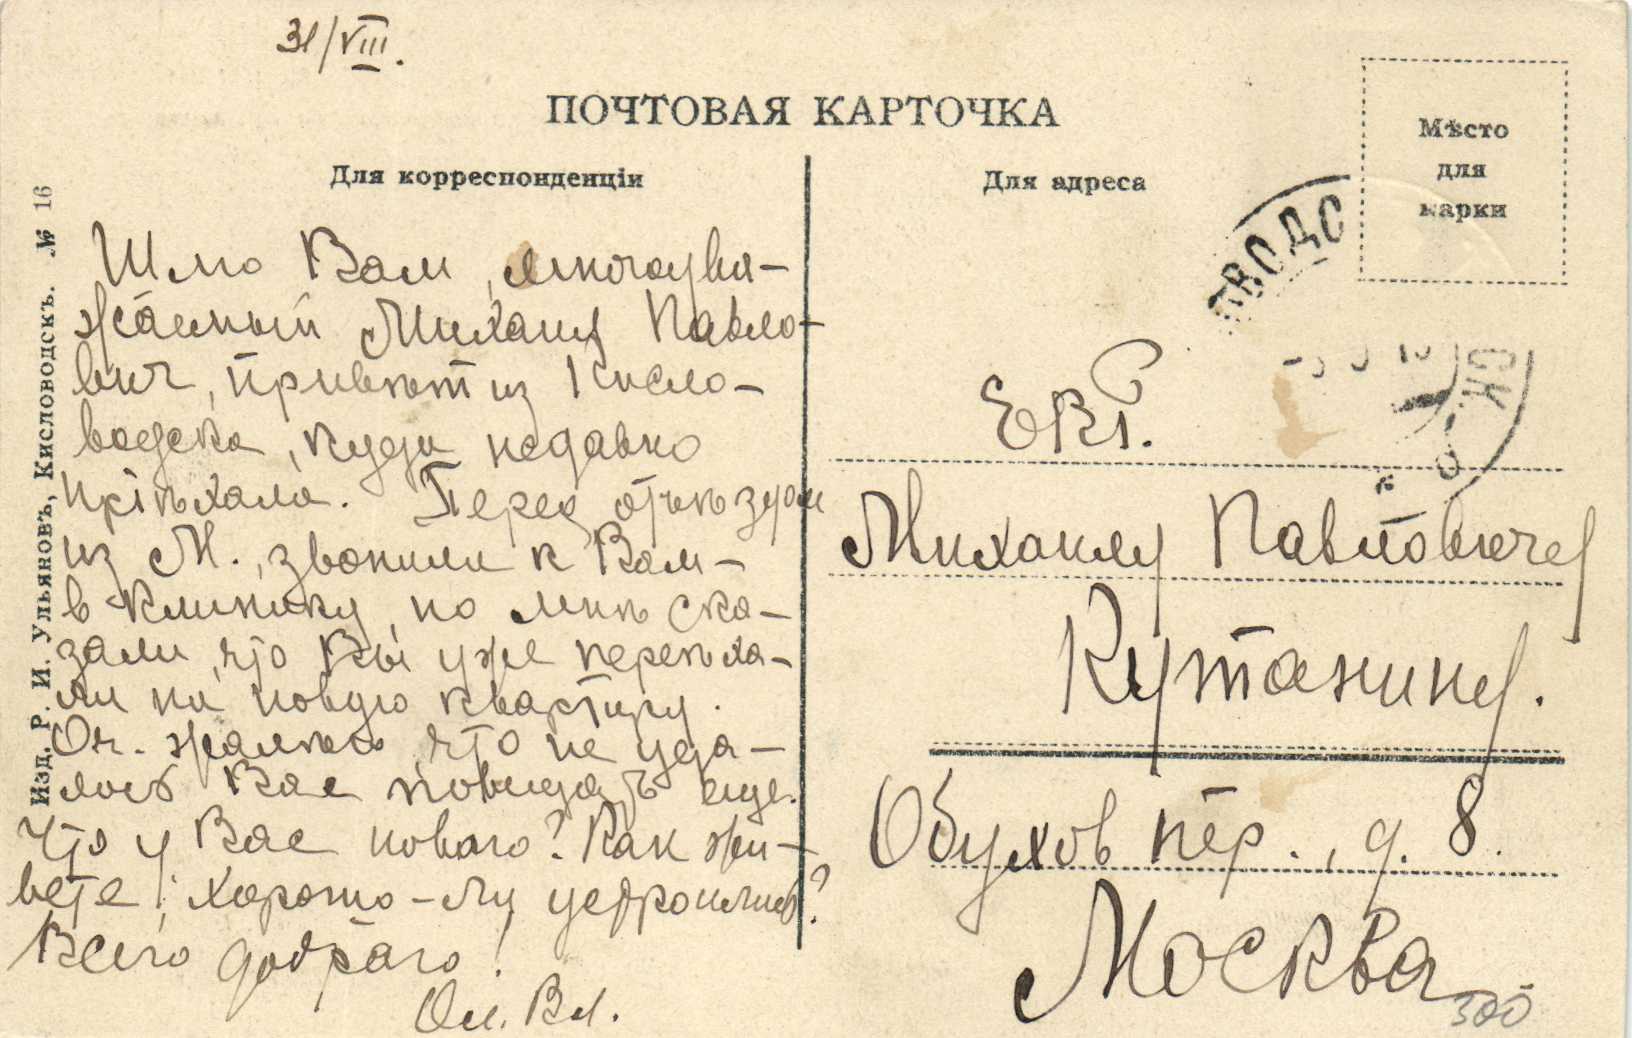 31/VIII.
ПОЧТОВАЯ КАРТОЧКА
Для корреспонденціи
Для адреса
Мѣсто
для
марки
Изд. Р. И. Ульяновъ, Кисловодскъ. № 16
Шлю Вам, многоува-
жаемый Михаил Павло-
вич, привѣт из Кисло-
водска, куда недавно
пріѣхала. Перед отъѣздом
из М., звонила к Вам-
в клинику, но мнѣ ска-
зали, что Вы уже переѣха-
ли на новую квартиру.
Оч. жалѣю, что не уда-
лось Вас повидать еще.
Что у Вас новаго? Как жи-
вете; хорошо-ли устроились?
Всего добраго!
Ол. Вл.
ВОДС
СК
ЕВГ.
Михаилу Павловичу
Кутанину.
Обухов пер., д. 8.
Москва
300